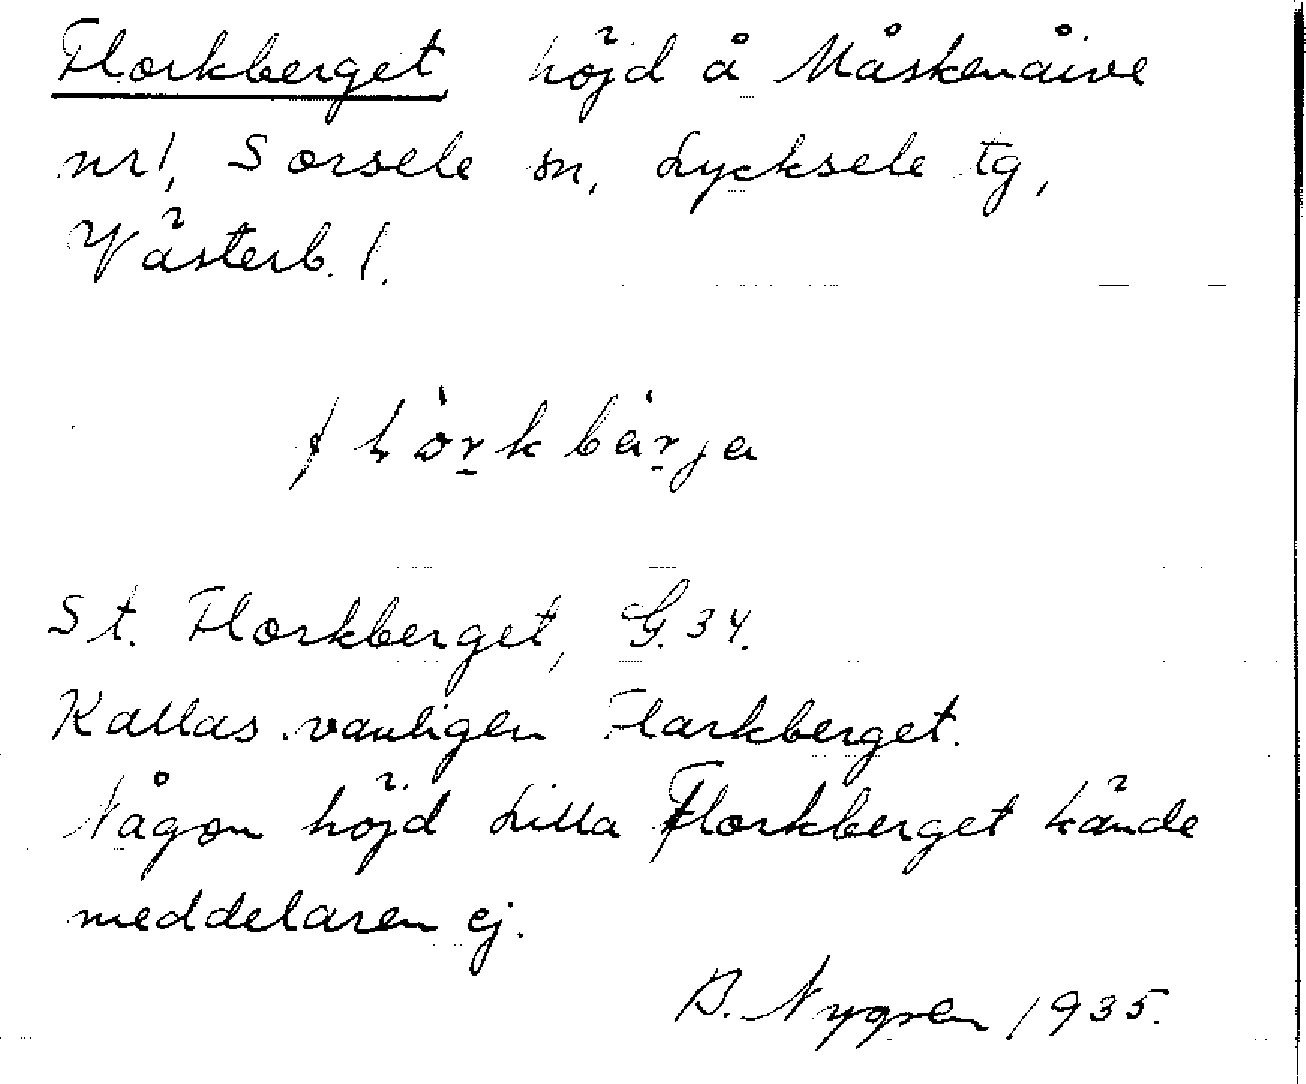 Florkberget höjd å Måskenåive
nr 1, Sorsele sn, Lycksele tg,
Västerb. l.
St. Florkberget, G. 34.
Kallas vanligen Flarkberget.
Någon höjd Lilla Florkberget kände
meddelaren ej.
B. Nygren 1935.